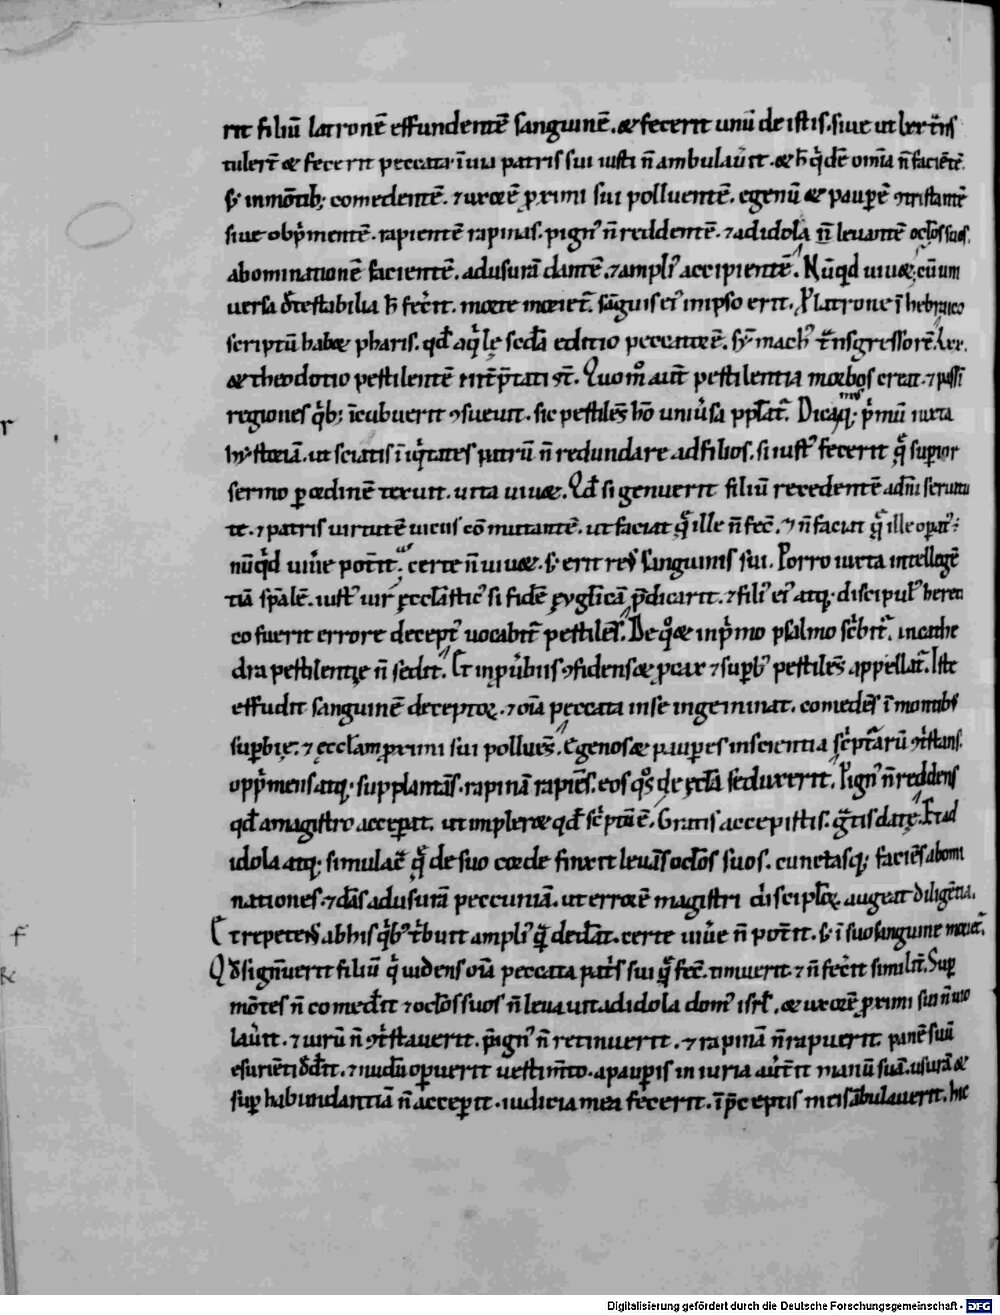 rit filiū latronē effundentē sanguinē. & fecerit unū de istis. siue ut lxx t̄ns
tulert̄ & fecerit peccata ī uia patris sui iusti n̄ ambulauīt. & h̄ q̇dē om̄ia n̄ faciētē.
s; in mōtib; comedentē. ⁊ uxorē ꝓximi sui polluentē. egenū & pauꝑē ꝯtristantē
siue obp̄mentē. rapientē rapinas. pign᾽ n̄ reddentē. ⁊ ad idola n̄ leuantē oc̄los suos.
abominationē facientē. ad usurā dantē. ⁊ ampli᾽ accipientē. Nūqd uiu&; cū um
uersa d̄testabilia h̄ fec̄it. morte moriet̄. sāguis ei᾽ in ipso erit. P̄ latrone ī hebraico
scriptū hab& pharis. qd̄ aq̇lę sc̄da editio peccatorē. sym̄ach᾽ t̄nsgressorē. lxx.
& theodotio pestilentē int̄p̄tati st̄. Quom̊ aut̄ pestilentia morbos creat. ⁊ passī
regiones q̇b; īcubuerit ꝯsueuit. sic pestilēs hō uniūsa pp̄lat̄. Dicam᾽q; p̄mū iuxta
hystoriā. ut sciatis īiq̇tates patrū n̄ redundare ad filios. si iust᾽ fecerit q̄ suꝑior
sermo ꝑ ordinē texuit. uita uiu&. Qd̄ si genuerit filiū recedentē a dn̄i seruitu
te. ⁊ patris uirtutē uiciis cōmutantē. ut faciat q̄ ille n̄ fec̄. ⁊ n̄ faciat q̄ ille opat᾽ ē.
nūq̇d uiūe pot̄it; certe n̄ uiu&. s; erit re᾽ sanguinis sui. Porro iuxta intellegē
tiā sp̄alē. iust᾽ uir ęccl̄astic᾽ si fidē euglicā p̄dicarit. ⁊ fili᾽ ei᾽ atq; discipul᾽ hereti
co fuerit errore decept᾽ uocabit᾽ pestilēs. De q̊ & in p̄mo psalmo sc̄bit̄. in cathe
dra pestilentię n̄ sedit. Et in ꝓūbiis ꝯfidens & pcax ⁊ supb᾽ pestilēs appellat̄. Iste
effudit sanguinē deceptoꝝ. ⁊ oīa peccata in se ingeminat. comedēs ī montib᾽
supbię. ⁊ ęccl̄am ꝓximi sui polluēs. Egenos & pauperes in scientia sc̄ptarū ꝯt̄stans.
opp̄mens atq; supplantās. rapinā rapiēs. eos q̊s de ęccl̄a seduxerit. Pign᾽ n̄ reddens
qd̄ a magistro accepit. ut impler& qd̄ sc̄ptū ē. Gratis accepistis. ḡtis datę. Et ad
idola atq; simulac̄ q̄ de suo corde finxit leuās oc̄los suos. cunctasq; faciēs abomi
nationes. ⁊ dās ad usurā peccuniā. ut errorē magistri discipl̄oꝝ augeat diligētia.
Et repetēs ab his q̇b᾽ t̄buit ampli᾽ q̄ dederat. certe uiūe n̄ pot̄it. s; ī suo sanguine moriet̄.
Qd̄ si gn̄uerit filiū q̇ uidens oīa peccata pat̄s sui q̄ fec̄. timuerit ⁊ n̄ fec̄it simil̄it. Sup
mōtes n̄ comed̄it ⁊ oc̄los suos n̄ leuauit ad idola dom᾽ isrl̄. & uxorē ꝓximi sui n̄ uio
lau̇it. ⁊ uirū n̄ ꝯt̄stauerit. pign᾽ n̄ retinuerit. ⁊ rapinā n̄ rapuerit. panē suū
esuriēti d̄d̄it. ⁊ nudū opuerit uestim̄to. a paupis iniuria au̇t̄it manū suā. usurā &
sup habundantiā n̄ accepit. iudicia mea fecerit. ī p̄ceptis meis ābulauerit. hic